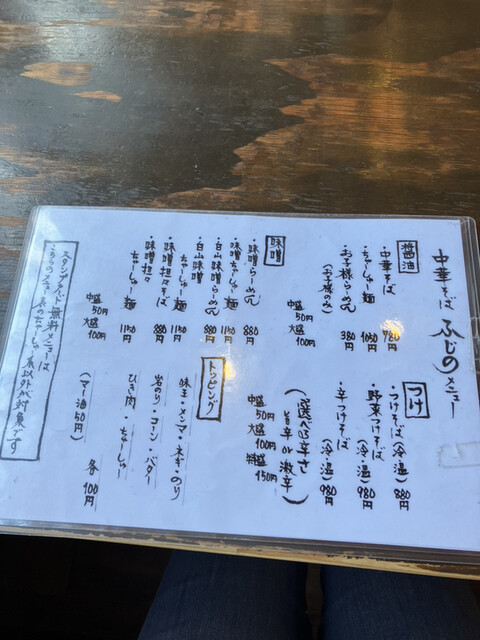 中華そば ふじのメニュー
醤油
・中華そば 780円
・ちゃーしゅー麺 1050円
・お子様らーめん 380円
(お子様のみ)
中盛 50円
大盛 100円
味噌
・味噌らーめん 880円
・味噌ちゃーしゅー麺 1150円
・白山味噌らーめん 880円
・白山味噌ちゃーしゅー麺 1150円
・味噌担々そば 880円
・味噌担々ちゃーしゅー麺 1150円
中盛 50円
大盛 100円
つけ
・つけそば(冷・温) 880円
・野菜つけそば(冷・温) 980円
・辛つけそば(冷・温) 980円
(選べる辛さ 旨辛 or 激辛)
中盛 50円
大盛 100円
特盛 150円
トッピング
味玉・メンマ・ネギ・のり
岩のり・コーン・バター
ひき肉・ちゃーしゅー
各100円
(マー油50円)
スタンプカード無料メニューは